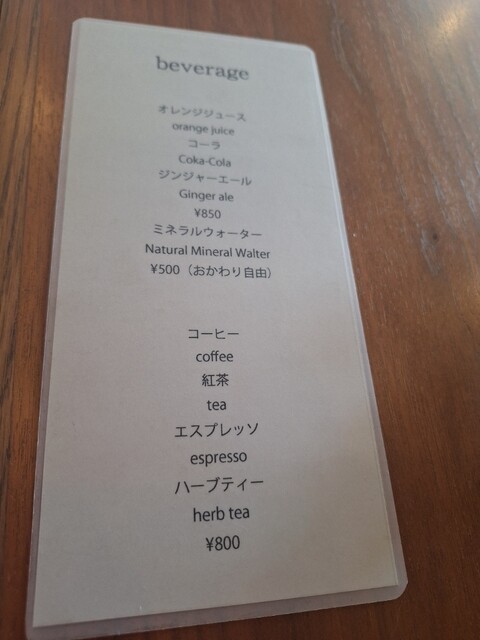 beverage
オレンジジュース
orange juice
コーラ
Coka-Cola
ジンジャーエール
Ginger ale
¥850
ミネラルウォーター
Natural Mineral Walter
¥500（おかわり自由）
コーヒー
coffee
紅茶
tea
エスプレッソ
espresso
ハーブティー
herb tea
¥800